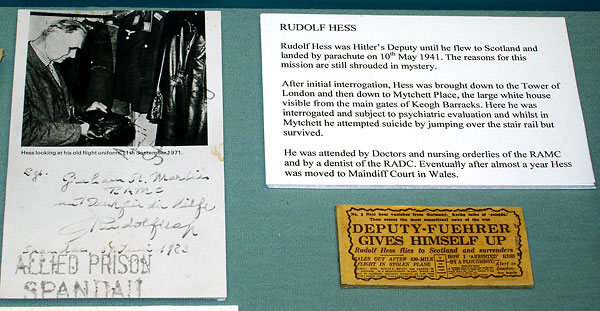 Hess looking at his old flight uniform, 11th September 1971.
Sgt.
RAMC
mit Dank für die Hilfe
1983
ALLIED PRISON
SPANDAU
RUDOLF HESS
Rudolf Hess was Hitler's Deputy until he flew to Scotland and
landed by parachute on 10th May 1941. The reasons for this
mission are still shrouded in mystery.
After initial interrogation, Hess was brought down to the Tower of
London and then down to Mytchett Place, the large white house
visible from the main gates of Keogh Barracks. Here he was
interrogated and subject to psychiatric evaluation and whilst in
Mytchett he attempted suicide by jumping over the stair rail but
survived.
He was attended by Doctors and nursing orderlies of the RAMC
and by a dentist of the RADC. Eventually after almost a year Hess
was moved to Maindiff Court in Wales.
DEPUTY-FUEHRER
GIVES HIMSELF UP
Rudolf Hess flies to Scotland and surrenders
BALES OUT AFTER 800-MILE
FLIGHT IN STOLEN PLANE
HOW I "ARRESTED" HESS
—BY A PLOUGHBOY
Alert in
London—